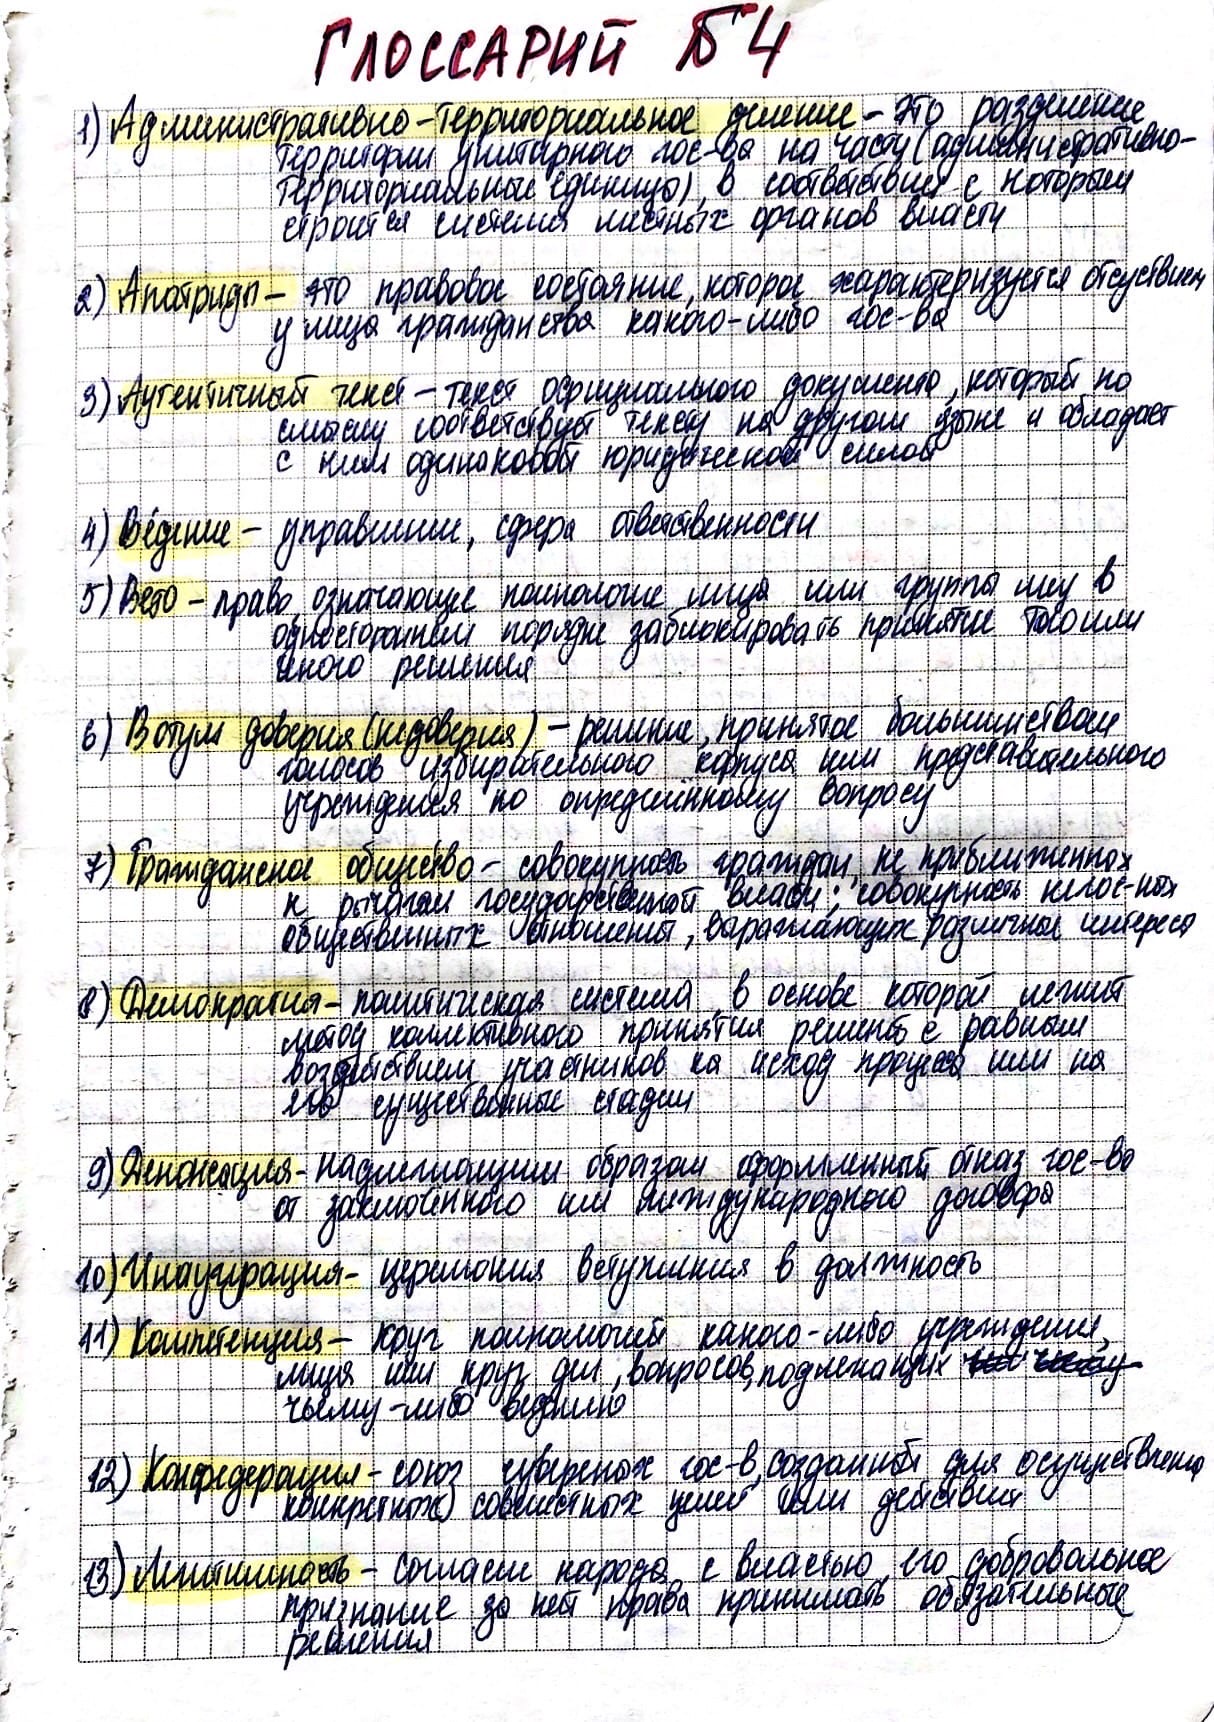 ГЛОССАРИЙ Б4
1) Административно-территориальное деление - это разделение
территории унитарного гос-ва на части (административно-
территориальные единицы), в соответствии с которым
строится система местных органов власти
2) Апатрид - это правовое состояние, которое характеризуется отсуствием
у лица гражданства какого-либо гос-ва
3) Аутентичный текст - текст официального документа, который по
смыслу соответствует тексту на другом языке и обладает
с ним одинаковой юридической силой
4) Ве́дение - управление, сфера ответственности
5) Вето - право, означающее полномочие лица или группы лиц в
одностороннем порядке заблокировать принятие того или
иного решения
6) Вотум доверия (недоверия) - решение, принятое большинством
голосов избирательного корпуса или представительного
учреждения по определённому вопросу
7) Гражданское общество - совокупность граждан, не приближенных
к рычагам государственной власти; совокупность негос-ных
общественных отношений, выражающих различные интересы
8) Демократия - политическая система, в основе которой лежит
метод коллективного принятия решений с равным
воздействием участников на исход процесса или на
его существенные стадии
9) Денонсация - надлежащим образом оформленный отказ гос-ва
от заключённого им международного договора
10) Инаугурация - церемония вступления в должность
11) Компетенция - круг полномочий какого-либо учреждения,
лица или круг дел, вопросов, подлежащих
чьему-либо ведению
12) Конфедерация - союз суверенных гос-в, созданный для осуществления
конкретных совместных целей или действий
13) Легитимность - согласие народа с властью, его добровольное
признание за ней права принимать обязательные
решения